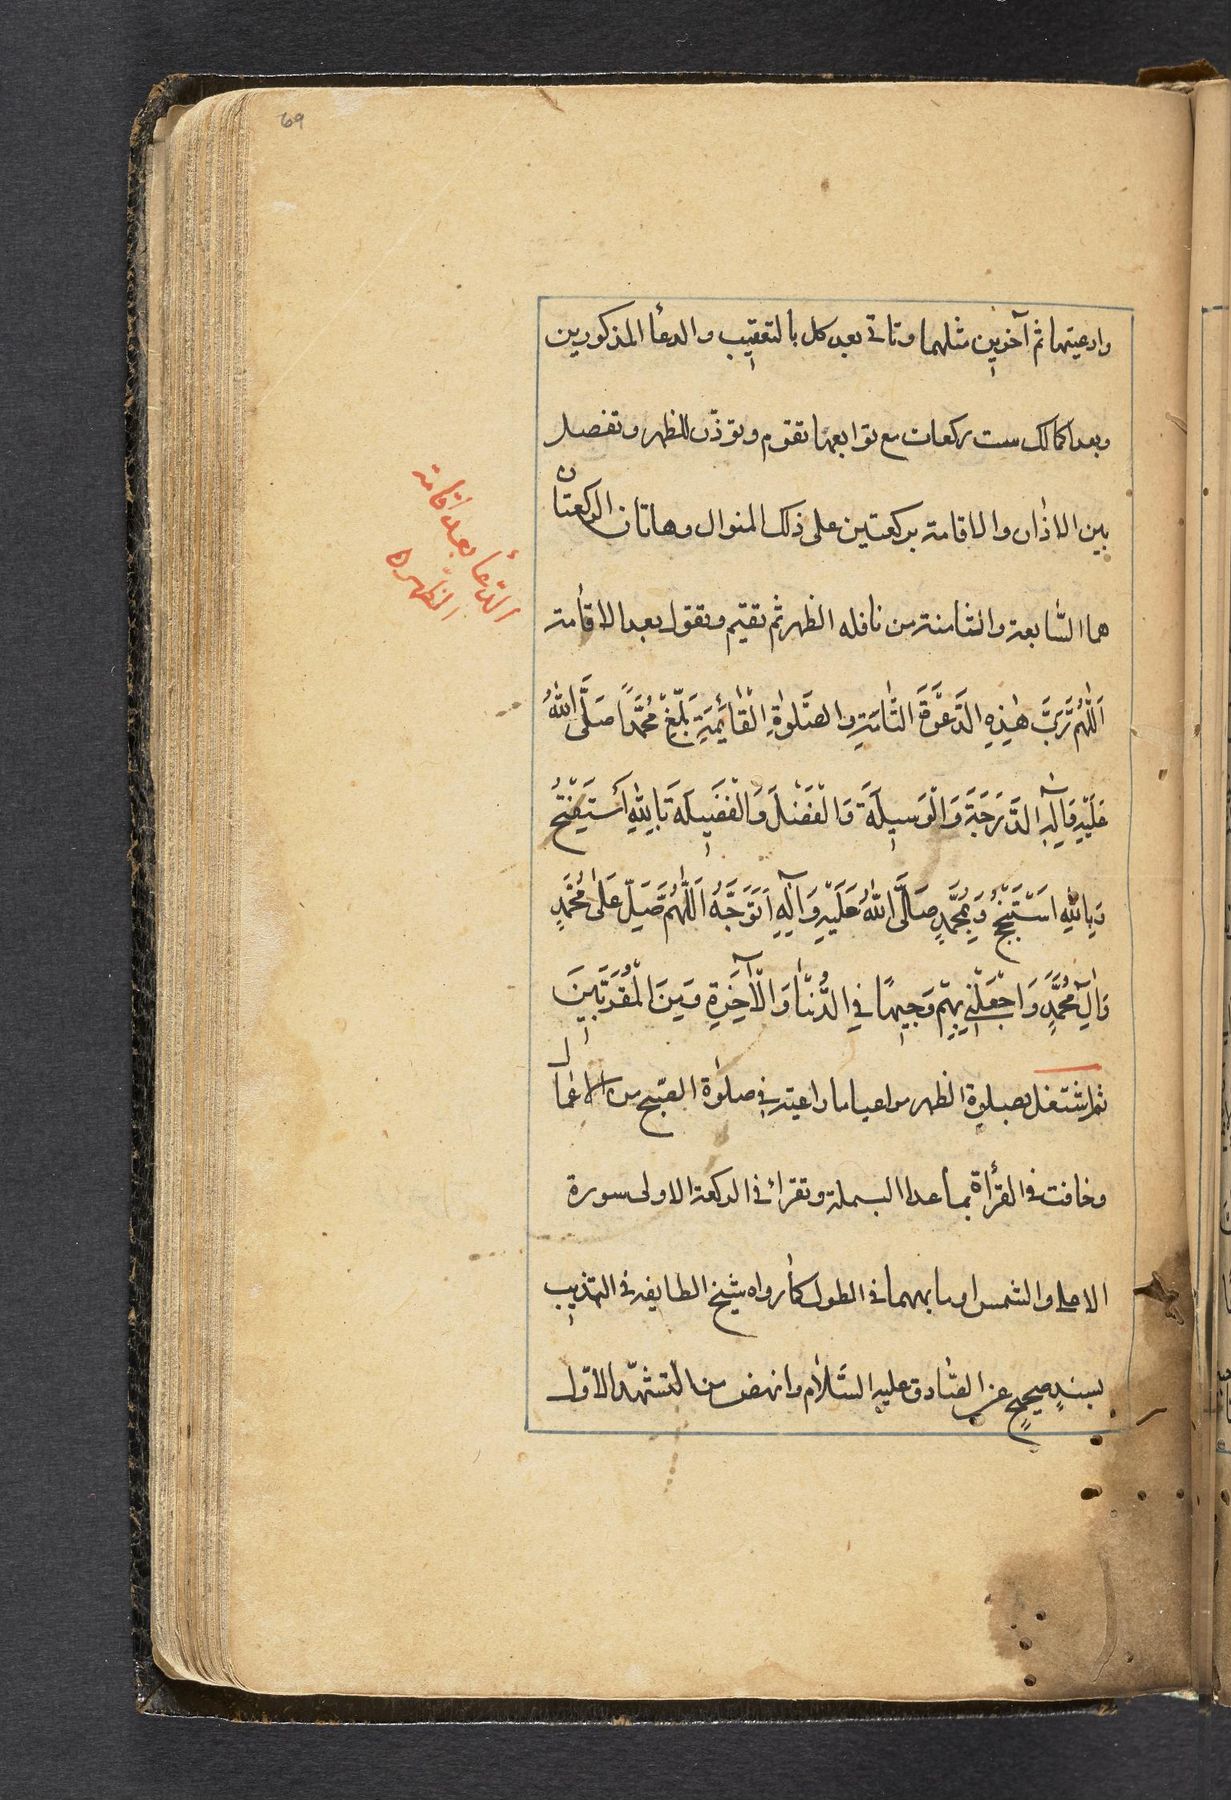 69
وادعيتها ثم آخرين مثلهما وتاتي بعد كل بالتعقيب والدعأ المذكورين
وبعد اكمالك ست ركعات مع توابعها تقوم وتوذّن للظهر وتفصل
بين الاذان والاقامة بركعتين على ذلك المنوال وهاتان الركعتان
هما السّابعة والثامنة من نافله الظهر ثم تقيم وتقول بعد الاقأمة
اَللّٰهُمَّ رَبَّ هٰذِهِ الدَّعْوَةِ التّٰامَّةِ والصَّلوٰةِ الْقٰائِمَةِ بَلِّغْ مُحَمَّدًا صَلَّى اللّٰهُ
عَلَيْهِ وَآلِهِ الدَّرَجَةَ وَالْوَسِيلَةَ وَالْفَضْلَ وَالْفَضِيلَةَ بِاللّٰهِ أَسْتَفْتِحُ
وَبِاللّٰهِ اَسْتَنْجِحُ وَبِمُحَمَّدٍ صَلَّى اللّٰهُ عَلَيْهِ وَآلِهِ اَتَوَجَّهُ اَللّٰهُمَّ صَلِّ عَلىٰ مُحَمَّدٍ
وَآلِ مُحَمَّدٍ وَاجْعَلْنِي بِهِمْ وَجِيهًا فِي الدُّنْيٰا وَالْآخِرَةِ وَمِنَ الْمُقَرَّبِينَ
ثم اشتغل بصلوة الظهر مراعيا ما راعيته في صلوٰة الصّبح من الاعمال
وخافت في القرأة بما عدا البسملة وتقرأ في الركعة الاولى سورة
الاعلى والشمس او ما بهما في الطول كمأ رواه شيخ الطايفه في التهذيب
بسندٍ صحيحٍ عن الصّادق عليه السّلام وانهض من التشهّد الاوّل
الدّعأ بعد اقامة
الظهره